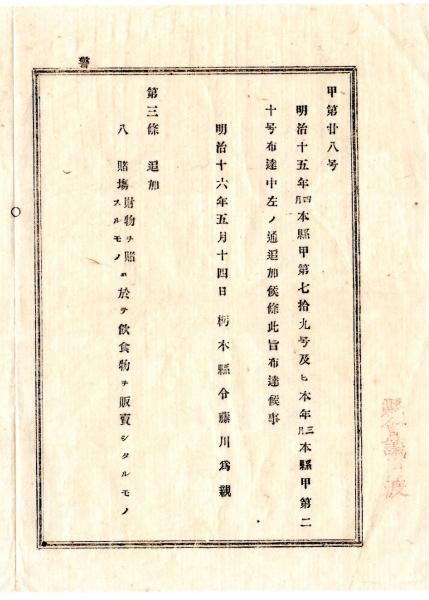 警
甲第廿八号
明治十五年四月本縣甲第七拾九号及ヒ本年三月本縣甲第二
十号布達中左ノ通追加候條此旨布達候事
明治十六年五月十四日 栃木縣令藤川為親
第三條 追加
八 賭場財物ヲ賭スルモノニ於テ飲食物ヲ販賣シタルモノ